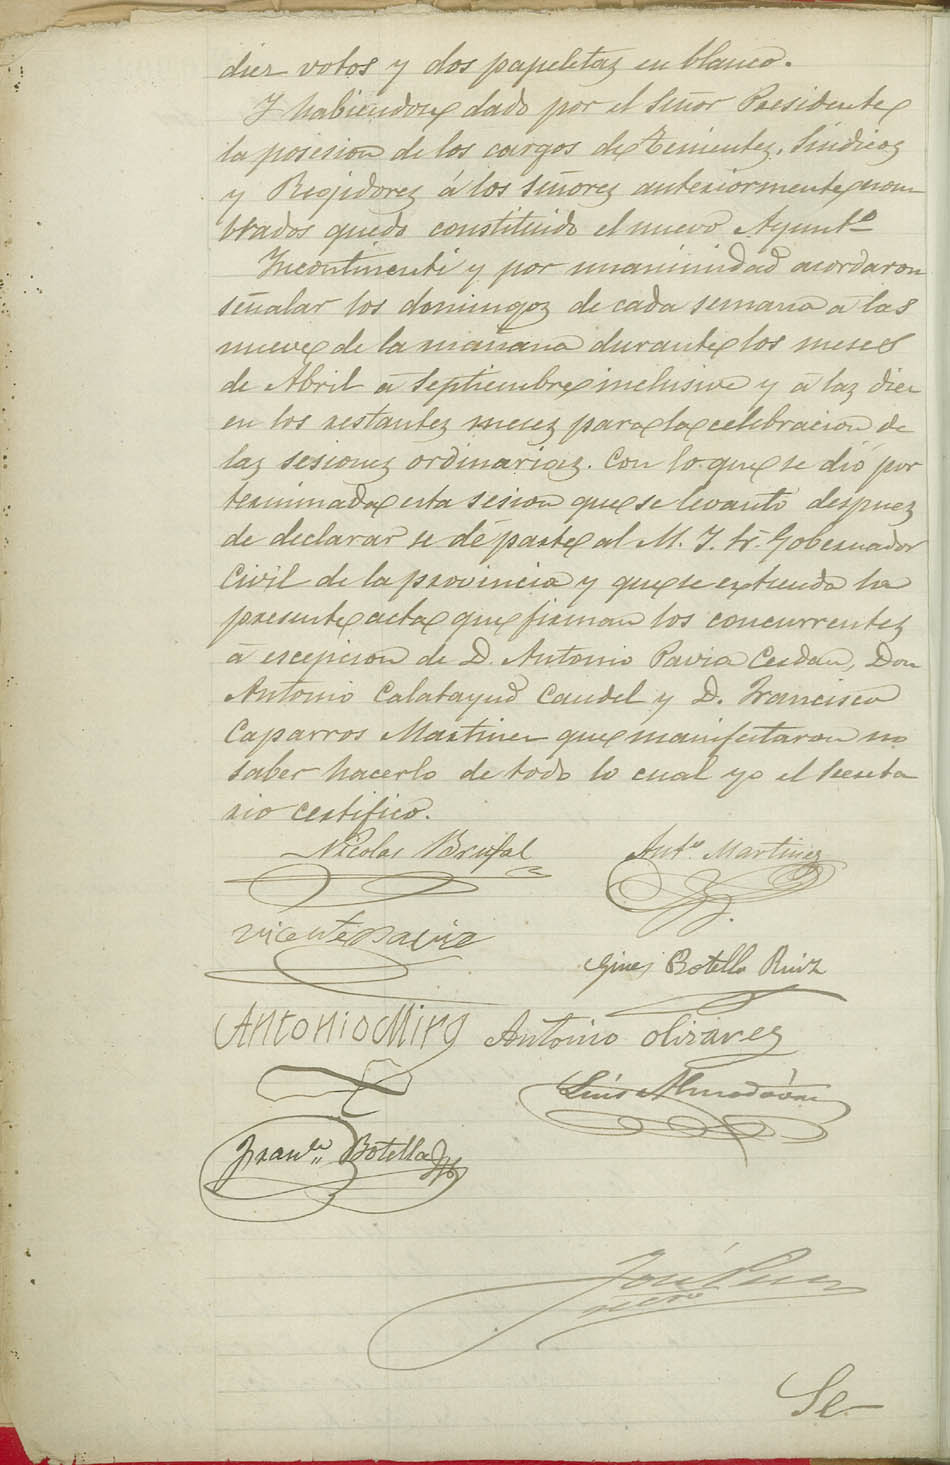 diez votos y dos papeletas en blanco.
Y habiendose dado por el Señor Presidente
la posesion de los cargos de Tenientes, Sindicos
y Regidores á los Señores anteriormente nom
brados quedo constituido el nuevo Ayunt.º
Incontinenti y por unanimidad acordaron
señalar los domingos de cada semana á las
nueve de la mañana durante los meses
de Abril á Septiembre inclusive y á las diez
en los restantes meses para la celebracion de
las sesiones ordinarias. Con lo que se dió por
terminada esta sesion que se levantó despues
de declarar se dé parte al M. I. Sr. Gobernador
Civil de la provincia y que se extienda la
presente acta que firman los concurrentes
á escepcion de D. Antonio Pavia Cerdan, Don
Antonio Calatayud Candel y D. Francisco
Caparros Martinez que manifestaron no
saber hacerlo de todo lo cual yo el Secreta
rio certifico.
Nicolas Brufal Ant.º Martinez
Vicente Davia
Gines Botella Ruiz
Antonio Miro Antonio Olivares
Luis Almodóvar
Fran.co Botella
José
Se